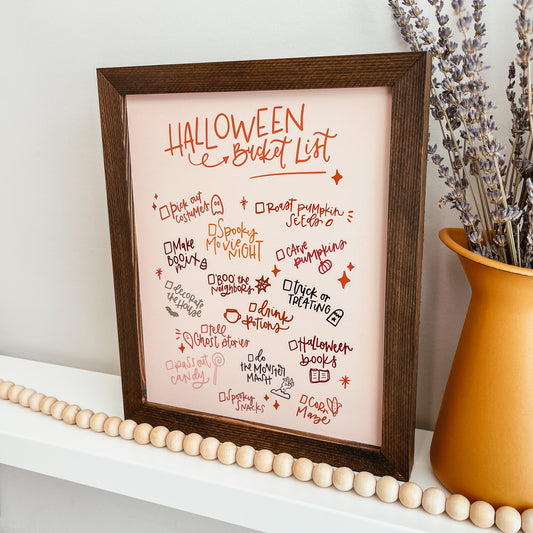 HALLOWEEN
Bucket List
pick out
costumes
Roast pumpkin
Seeds
Spooky
Movie
NIGHT
Make
BOO
Carve
pumpkins
"BOO" the
Neighbors
trick or
treating
decorate
the House
drink
potions
tell
Ghost stories
Halloween
books
pass out
candy
do
the Monster
Mash
Spooky
Snacks
Corn
Maze